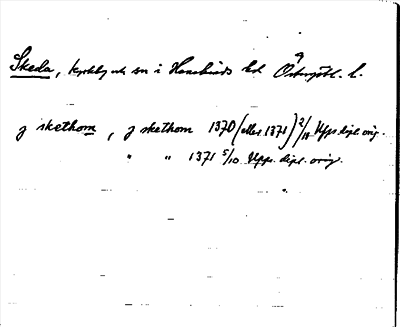 Skeda, kyrkby och sn i Hanekinds hd Östergötl. l.
j skethom, j skethom 1370 (eller 1371) 2/10 Upps dipl. orig.
" " 1371 5/10 Upps. dipl. orig.